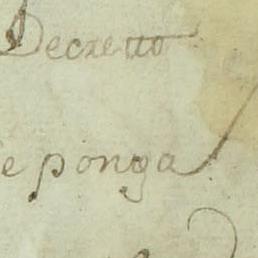 Decretto
e ponga